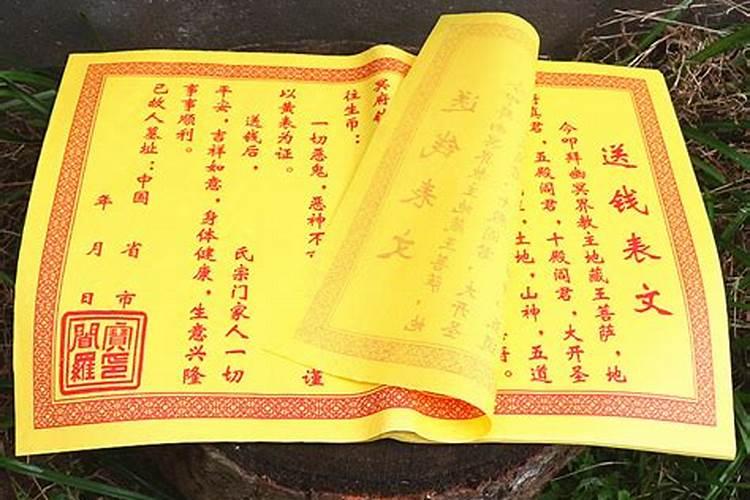 送钱表文
今叩拜幽冥界教主地藏王菩萨，地
真君，五殿阎君，十殿阎君，大开圣
土地，山神，五道
往生币：
一切恶鬼，恶神不
谨
以黄表为证。
送钱后，
氏宗门家人一切
平安，吉祥如意，身体健康，生意兴隆
事事顺利。
已故人墓址：中国
省 市
年 月 日
阎罗宝印